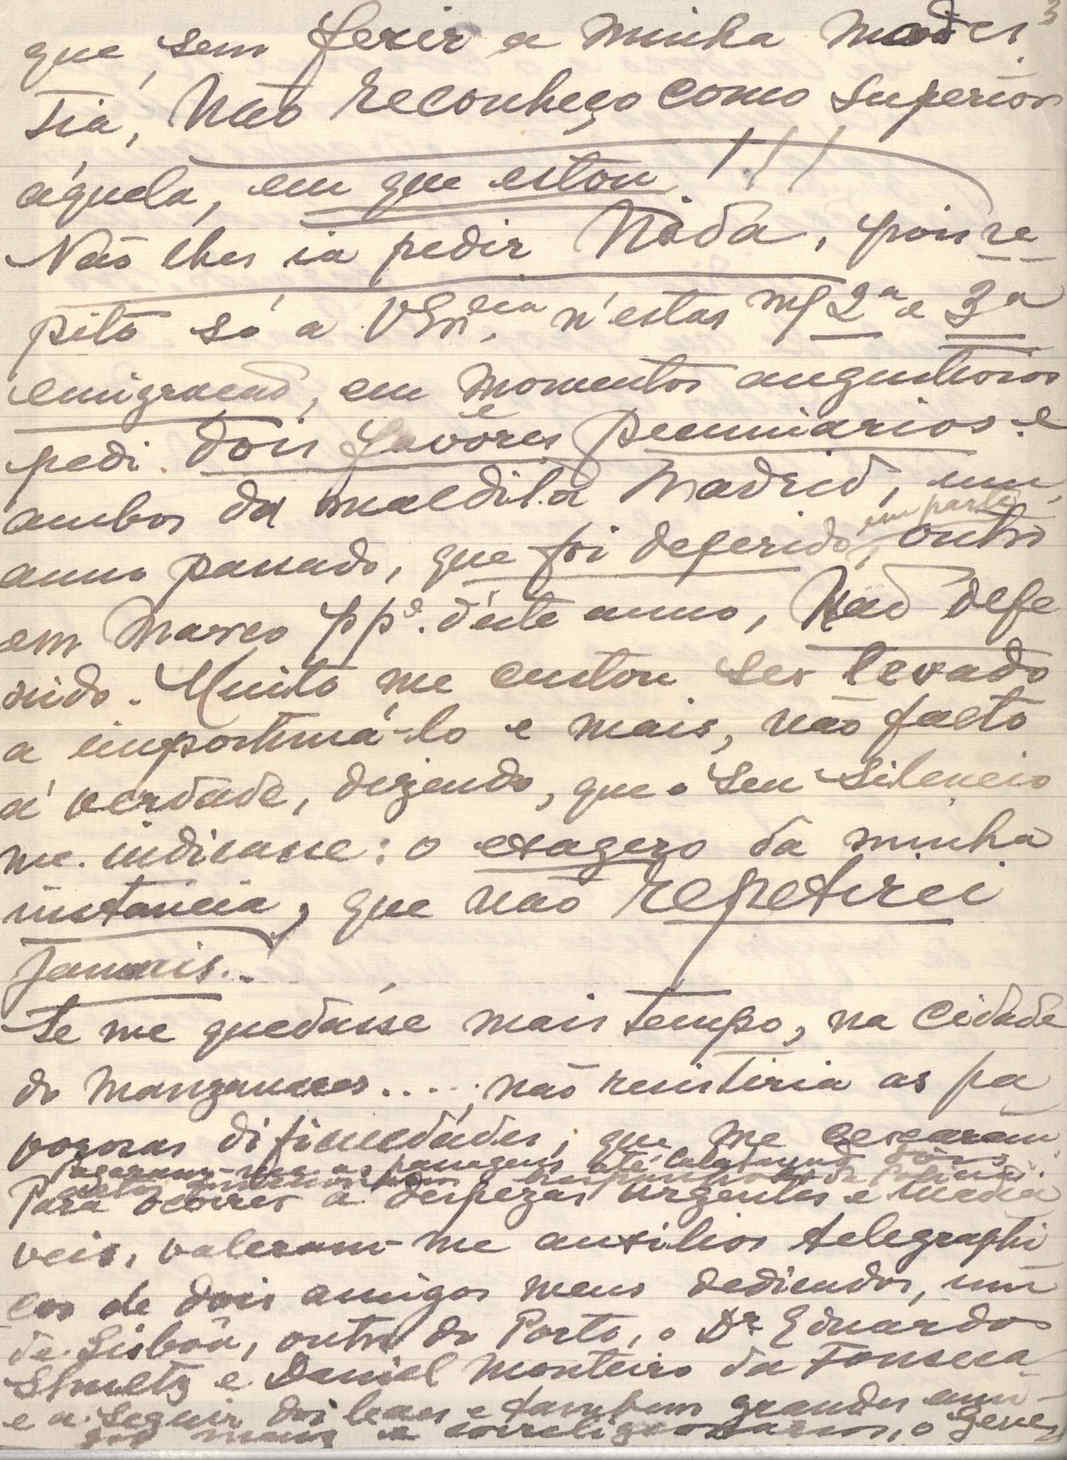 3
que, sem ferir a minha modes
tia, Não reconheço como superior
áquela, em que estou!!!
Não lhes ia pedir Nada, pois re
pito só a VExcia, n'estas m/ 2ª e 3ª
emigração, em momentos angustiosos
pedi dois favôres pecuniarios e
ambos da maldita Madrid, um,
em parte
anno passado, que foi deferido, outro
em Março ppº. d'este anno, Não defe
rido. Muito me custou ser levado
a importuná-lo e mais, não falto
á verdade, dizendo, que o seu silencio
me indicasse: o exagero da minha
instancia, que não repetirei
jamais..
Se me quedásse mais tempo, na cidade
do Manzanares.... não resistiria as pa
vorosas dificuldades, que me cercaram
pagaram-me as passagens até
Para ocorrer a despezas urgentes e inadia
veis, valeram-me auxilios telegraphi
cos de dois amigos meus dedicados, um
de Lisbôa, outro do Porto, o Dr. Eduardo
e Daniel Monteiro da Fonseca
e a seguir dois leaes e tambem grandes ami
gos meus e correligionarios, o Gene